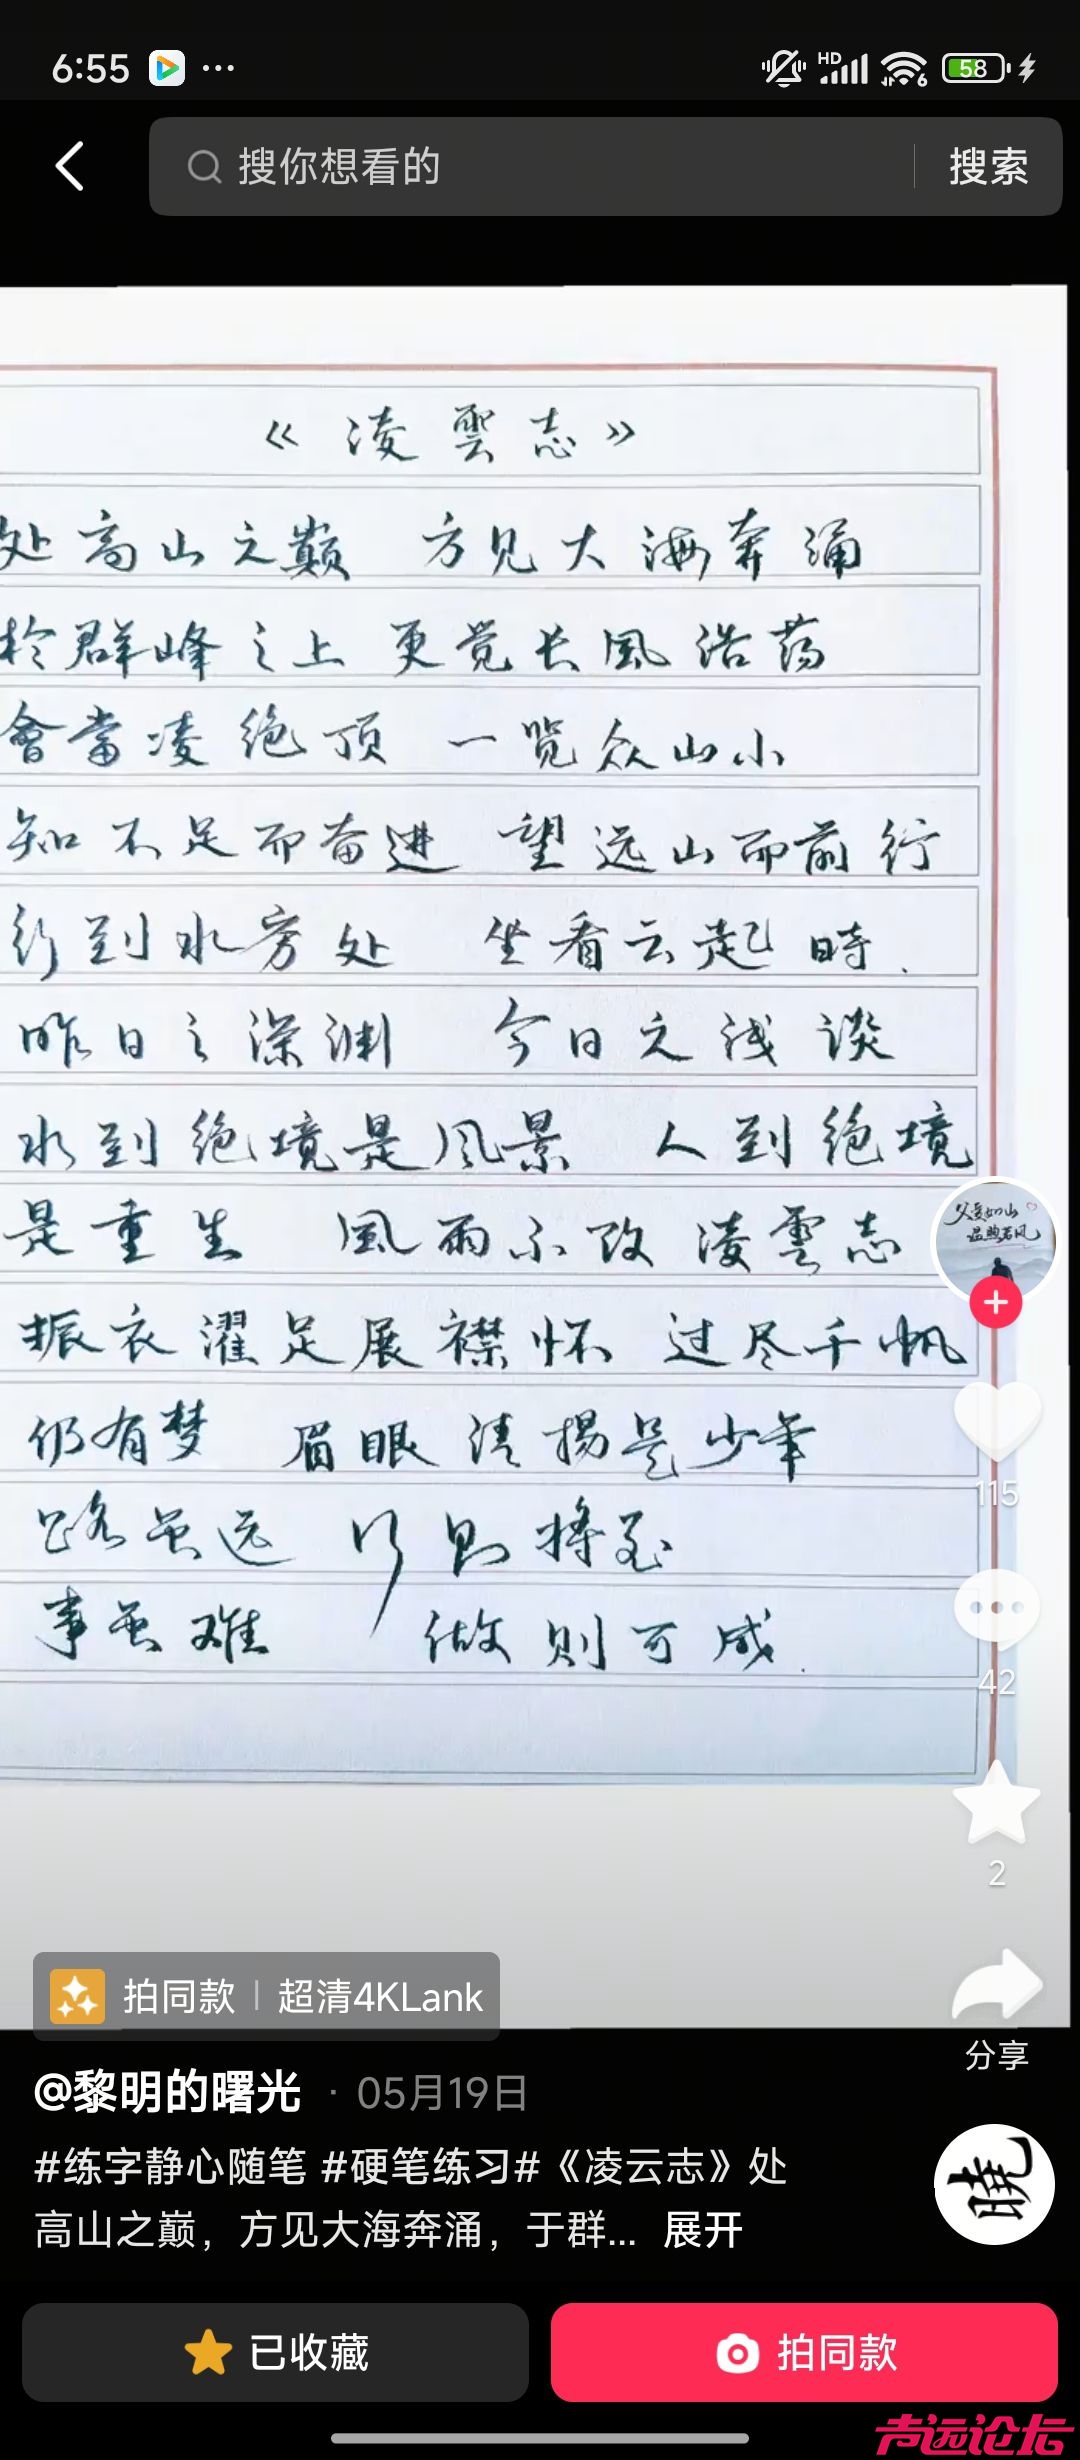 6:55
HD
6
58
搜你想看的
搜索
《凌雲志》
处高山之巅 方见大海奔涌
於群峰之上 更觉长風浩荡
會當凌绝顶 一览众山小
知不足而奋进 望远山而前行
行到水穷处 坐看云起時.
昨日之深渊 今日之浅谈
水到绝境是风景 人到绝境
是重生 風雨不改凌雲志
振衣濯足展襟怀 过尽千帆
仍有梦 眉眼清扬是少年
路虽远 行则将至
事虽难 做则可成.
父爱如山
温煦若风
115
42
2
分享
拍同款 | 超清4KLank
@黎明的曙光 · 05月19日
#练字静心随笔 #硬笔练习#《凌云志》处
高山之巅，方见大海奔涌，于群... 展开
曉
已收藏
拍同款
声远论坛